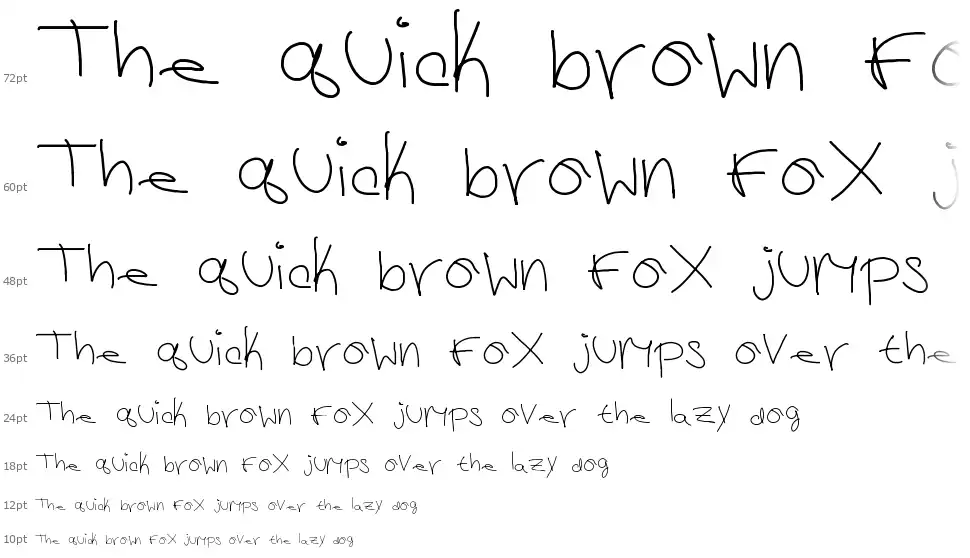 72pt The quick brown Fo
60pt The quick brown Fox j
48pt The quick brown Fox jumps
36pt The quick brown Fox jumps over the
24pt The quick brown Fox jumps over the lazy dog
18pt The quick brown Fox jumps over the lazy dog
12pt The quick brown Fox jumps over the lazy dog
10pt The quick brown Fox jumps over the lazy dog